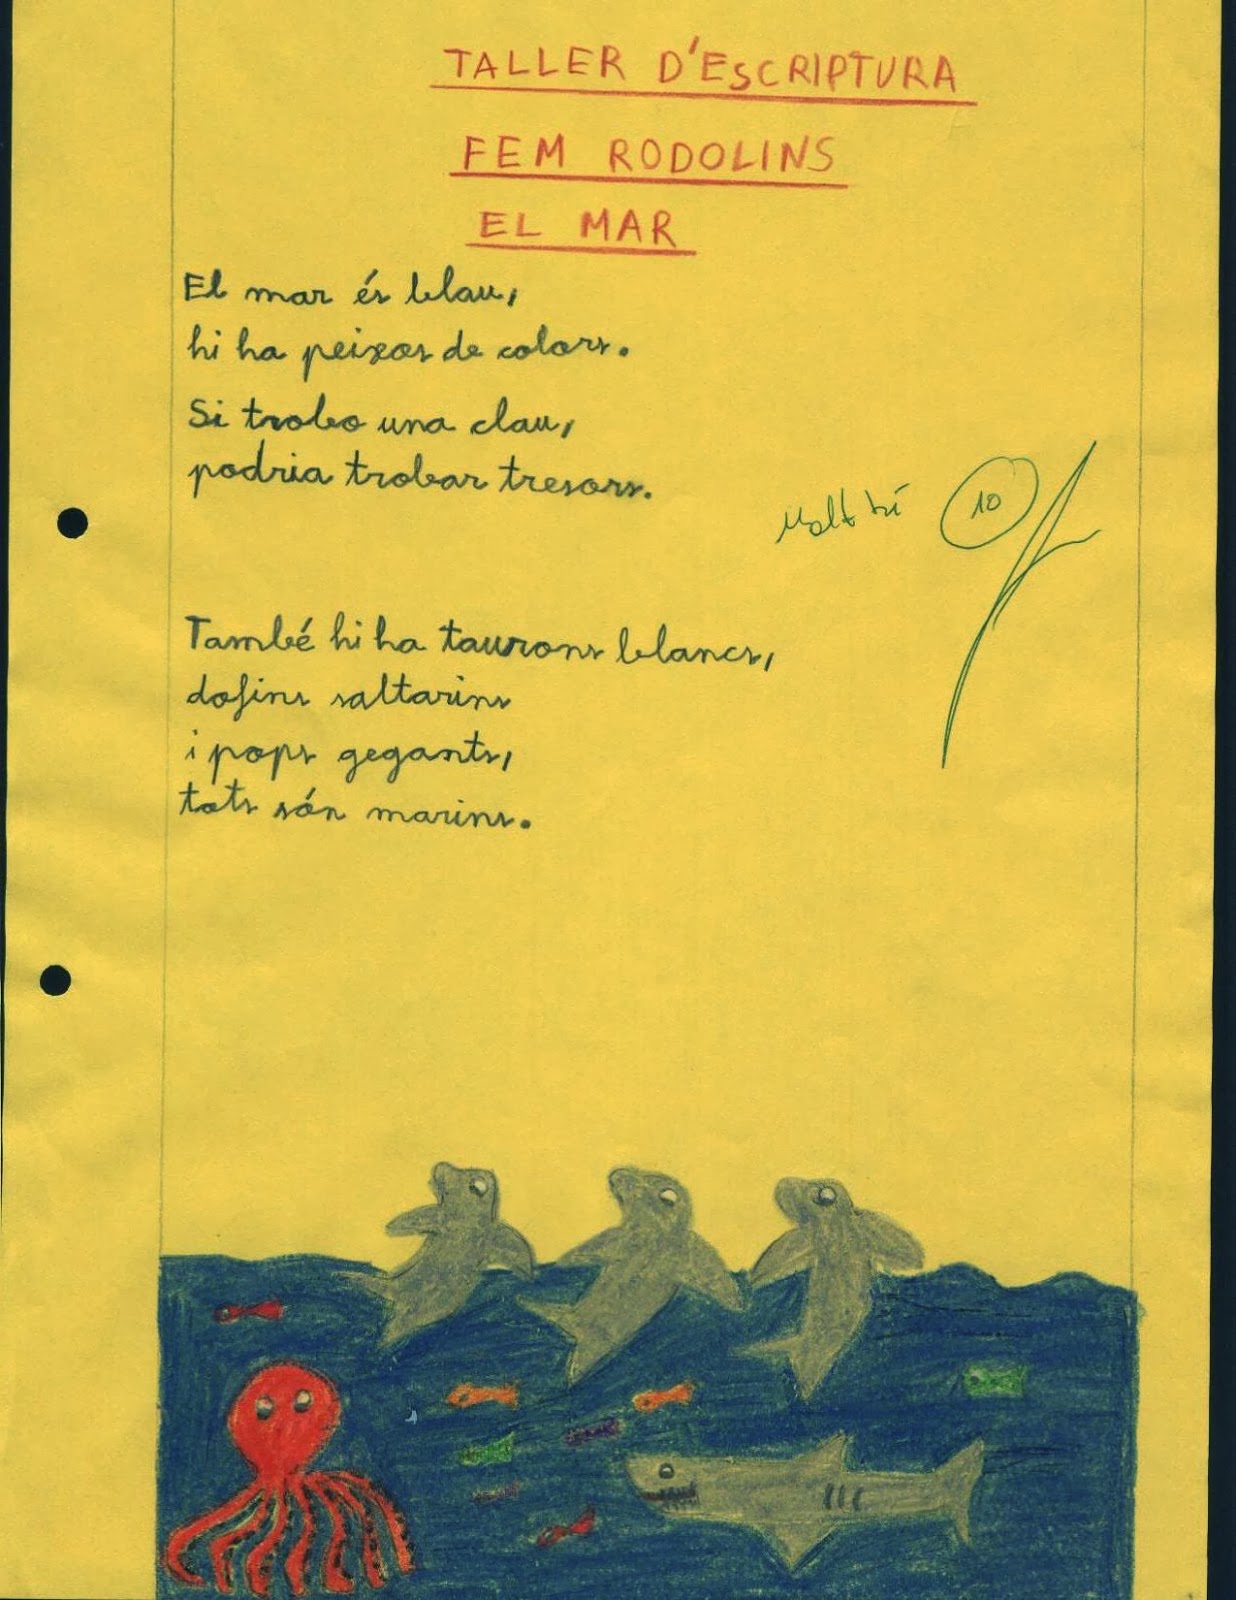 TALLER D'ESCRIPTURA
FEM RODOLINS
EL MAR
El mar és blau,
hi ha peixos de colors.
Si trobo una clau,
podria trobar tresors.
Molt bé 10
També hi ha taurons blancs,
dofins saltarins
i pops gegants,
tots són marins.